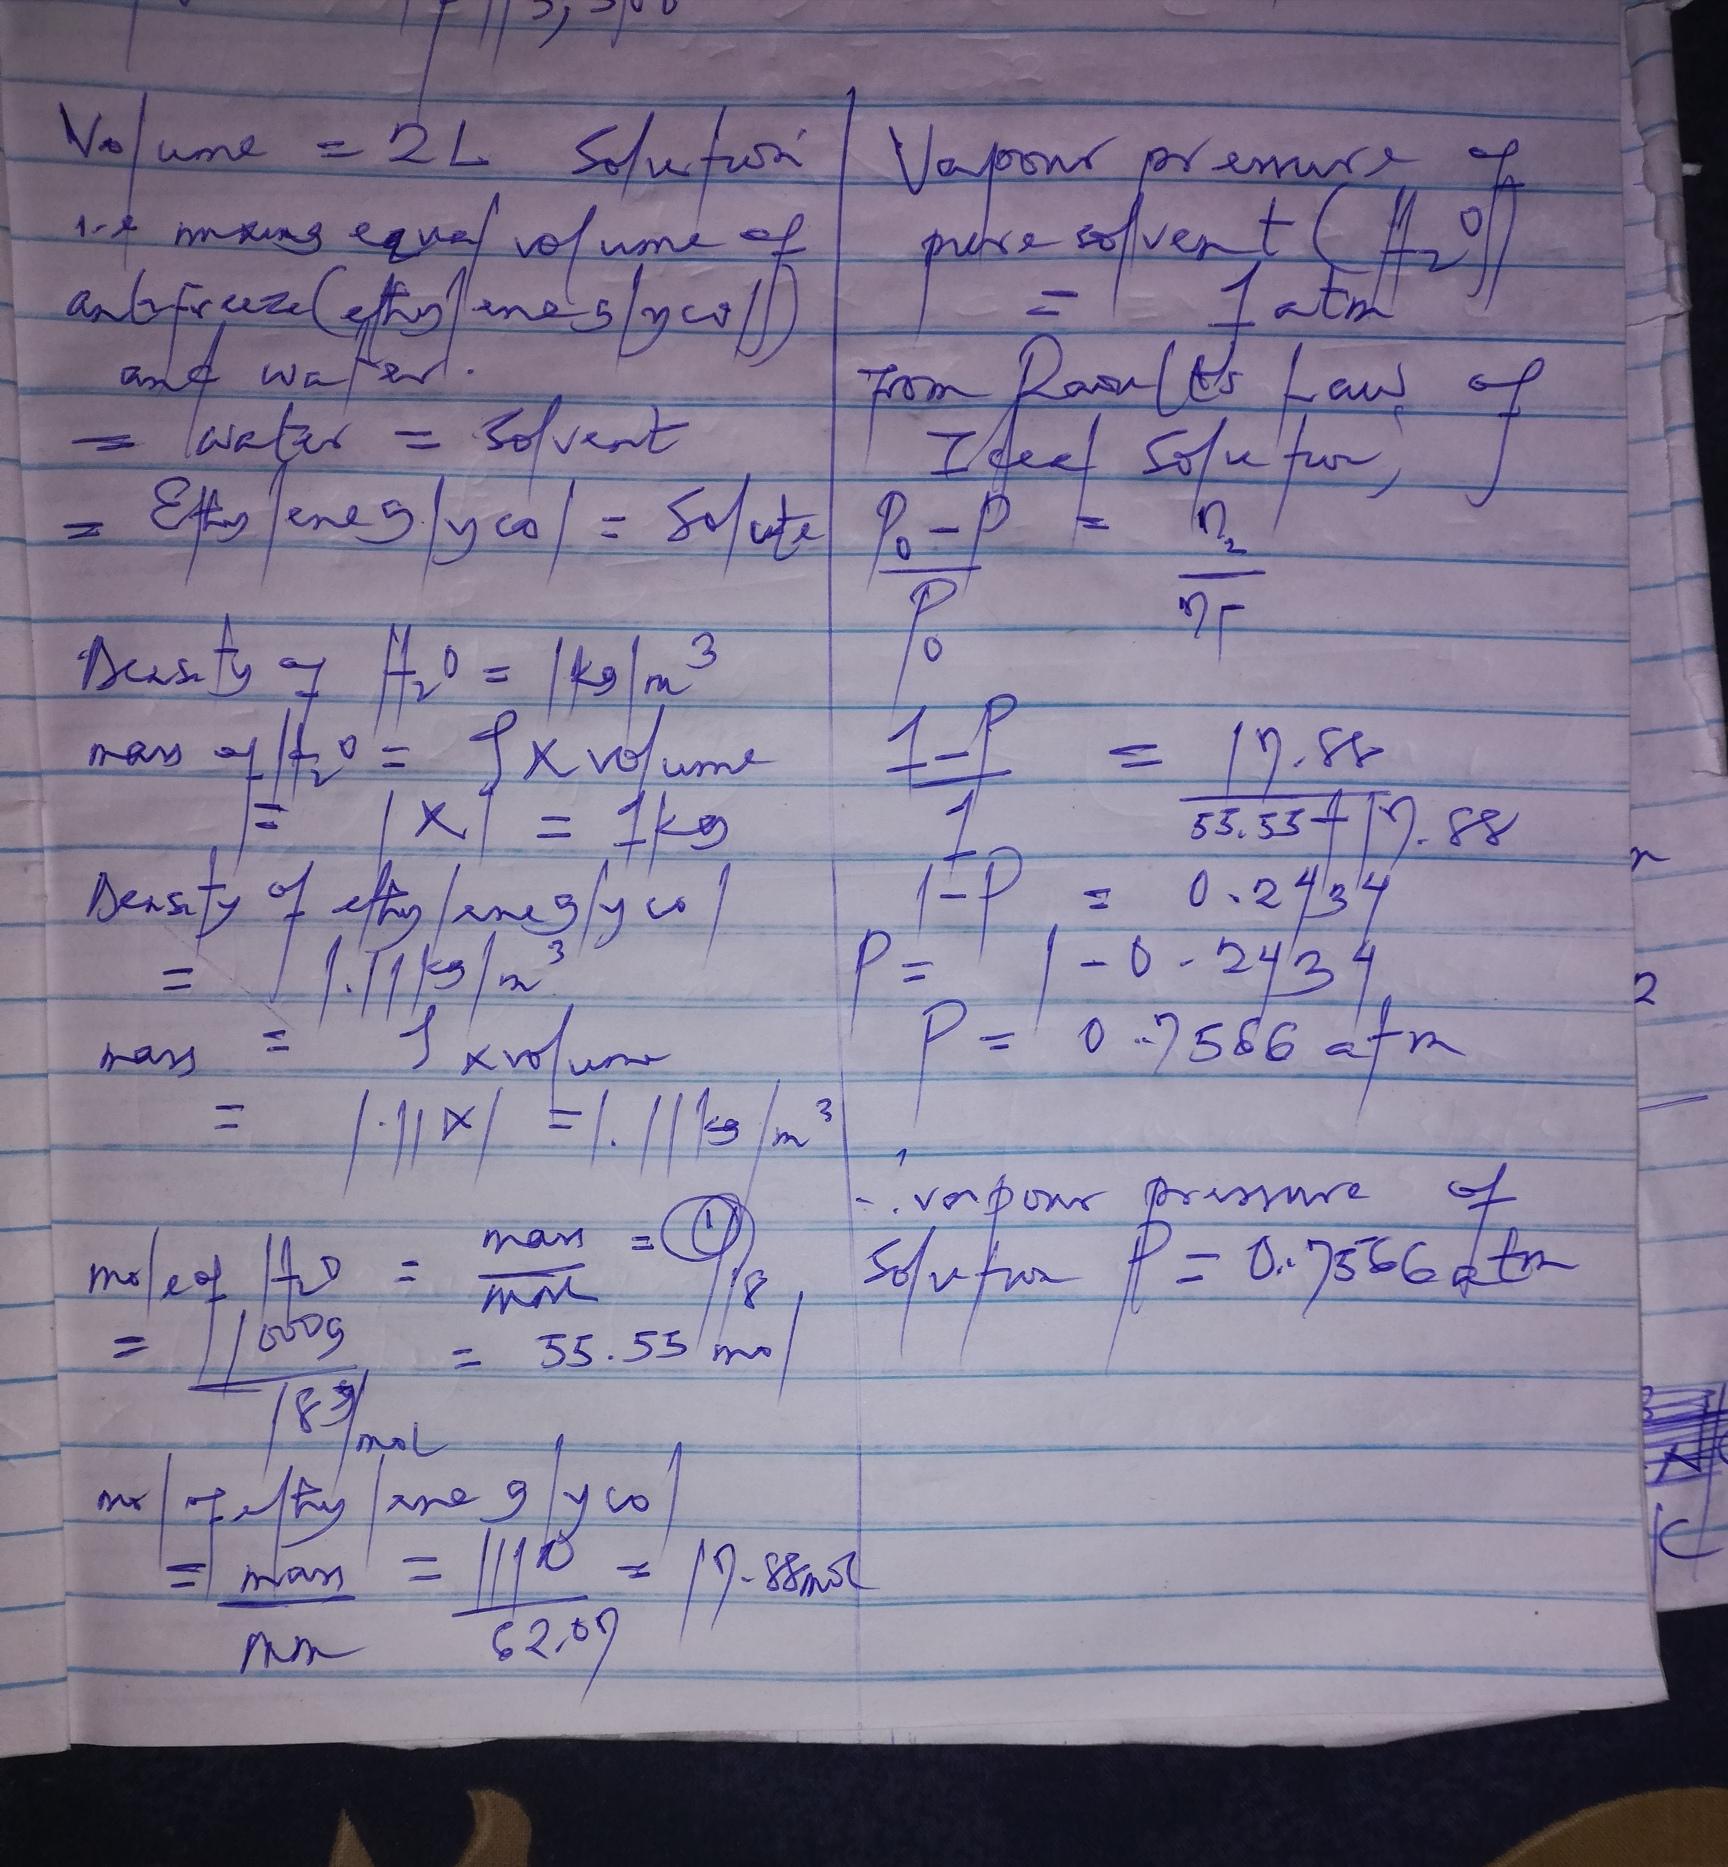 Volume = 2L Solution
i.e mixing equal volume of
antifreeze (ethylene glycol)
and water.
= Water = Solvent
= Ethylene glycol = Solute
Density of H₂O = 1kg/m³
mass of H₂O = ρ x volume
= 1 x 1 = 1kg
Density of ethylene glycol
= 1.11kg/m³
mass = ρ x volume
= 1.11 x 1 = 1.11kg/m³
mole of H₂O = mass/ = 1/18
= 1000g/18g/mol = 55.55 mol
mol of ethylene glycol
= mass/mm = 1110/62.07 = 17.88mol
Vapour pressure of
pure solvent (H₂O)
= 1 atm
From Raoult's Law of
Ideal Solution,
P₀ - P / P₀ = n₂ / nT
1 - P / 1 = 17.88 / 55.55 + 17.88
1 - P = 0.2434
P = 1 - 0.2434
P = 0.7566 atm
∴ vapour pressure of
Solution P = 0.7566 atm